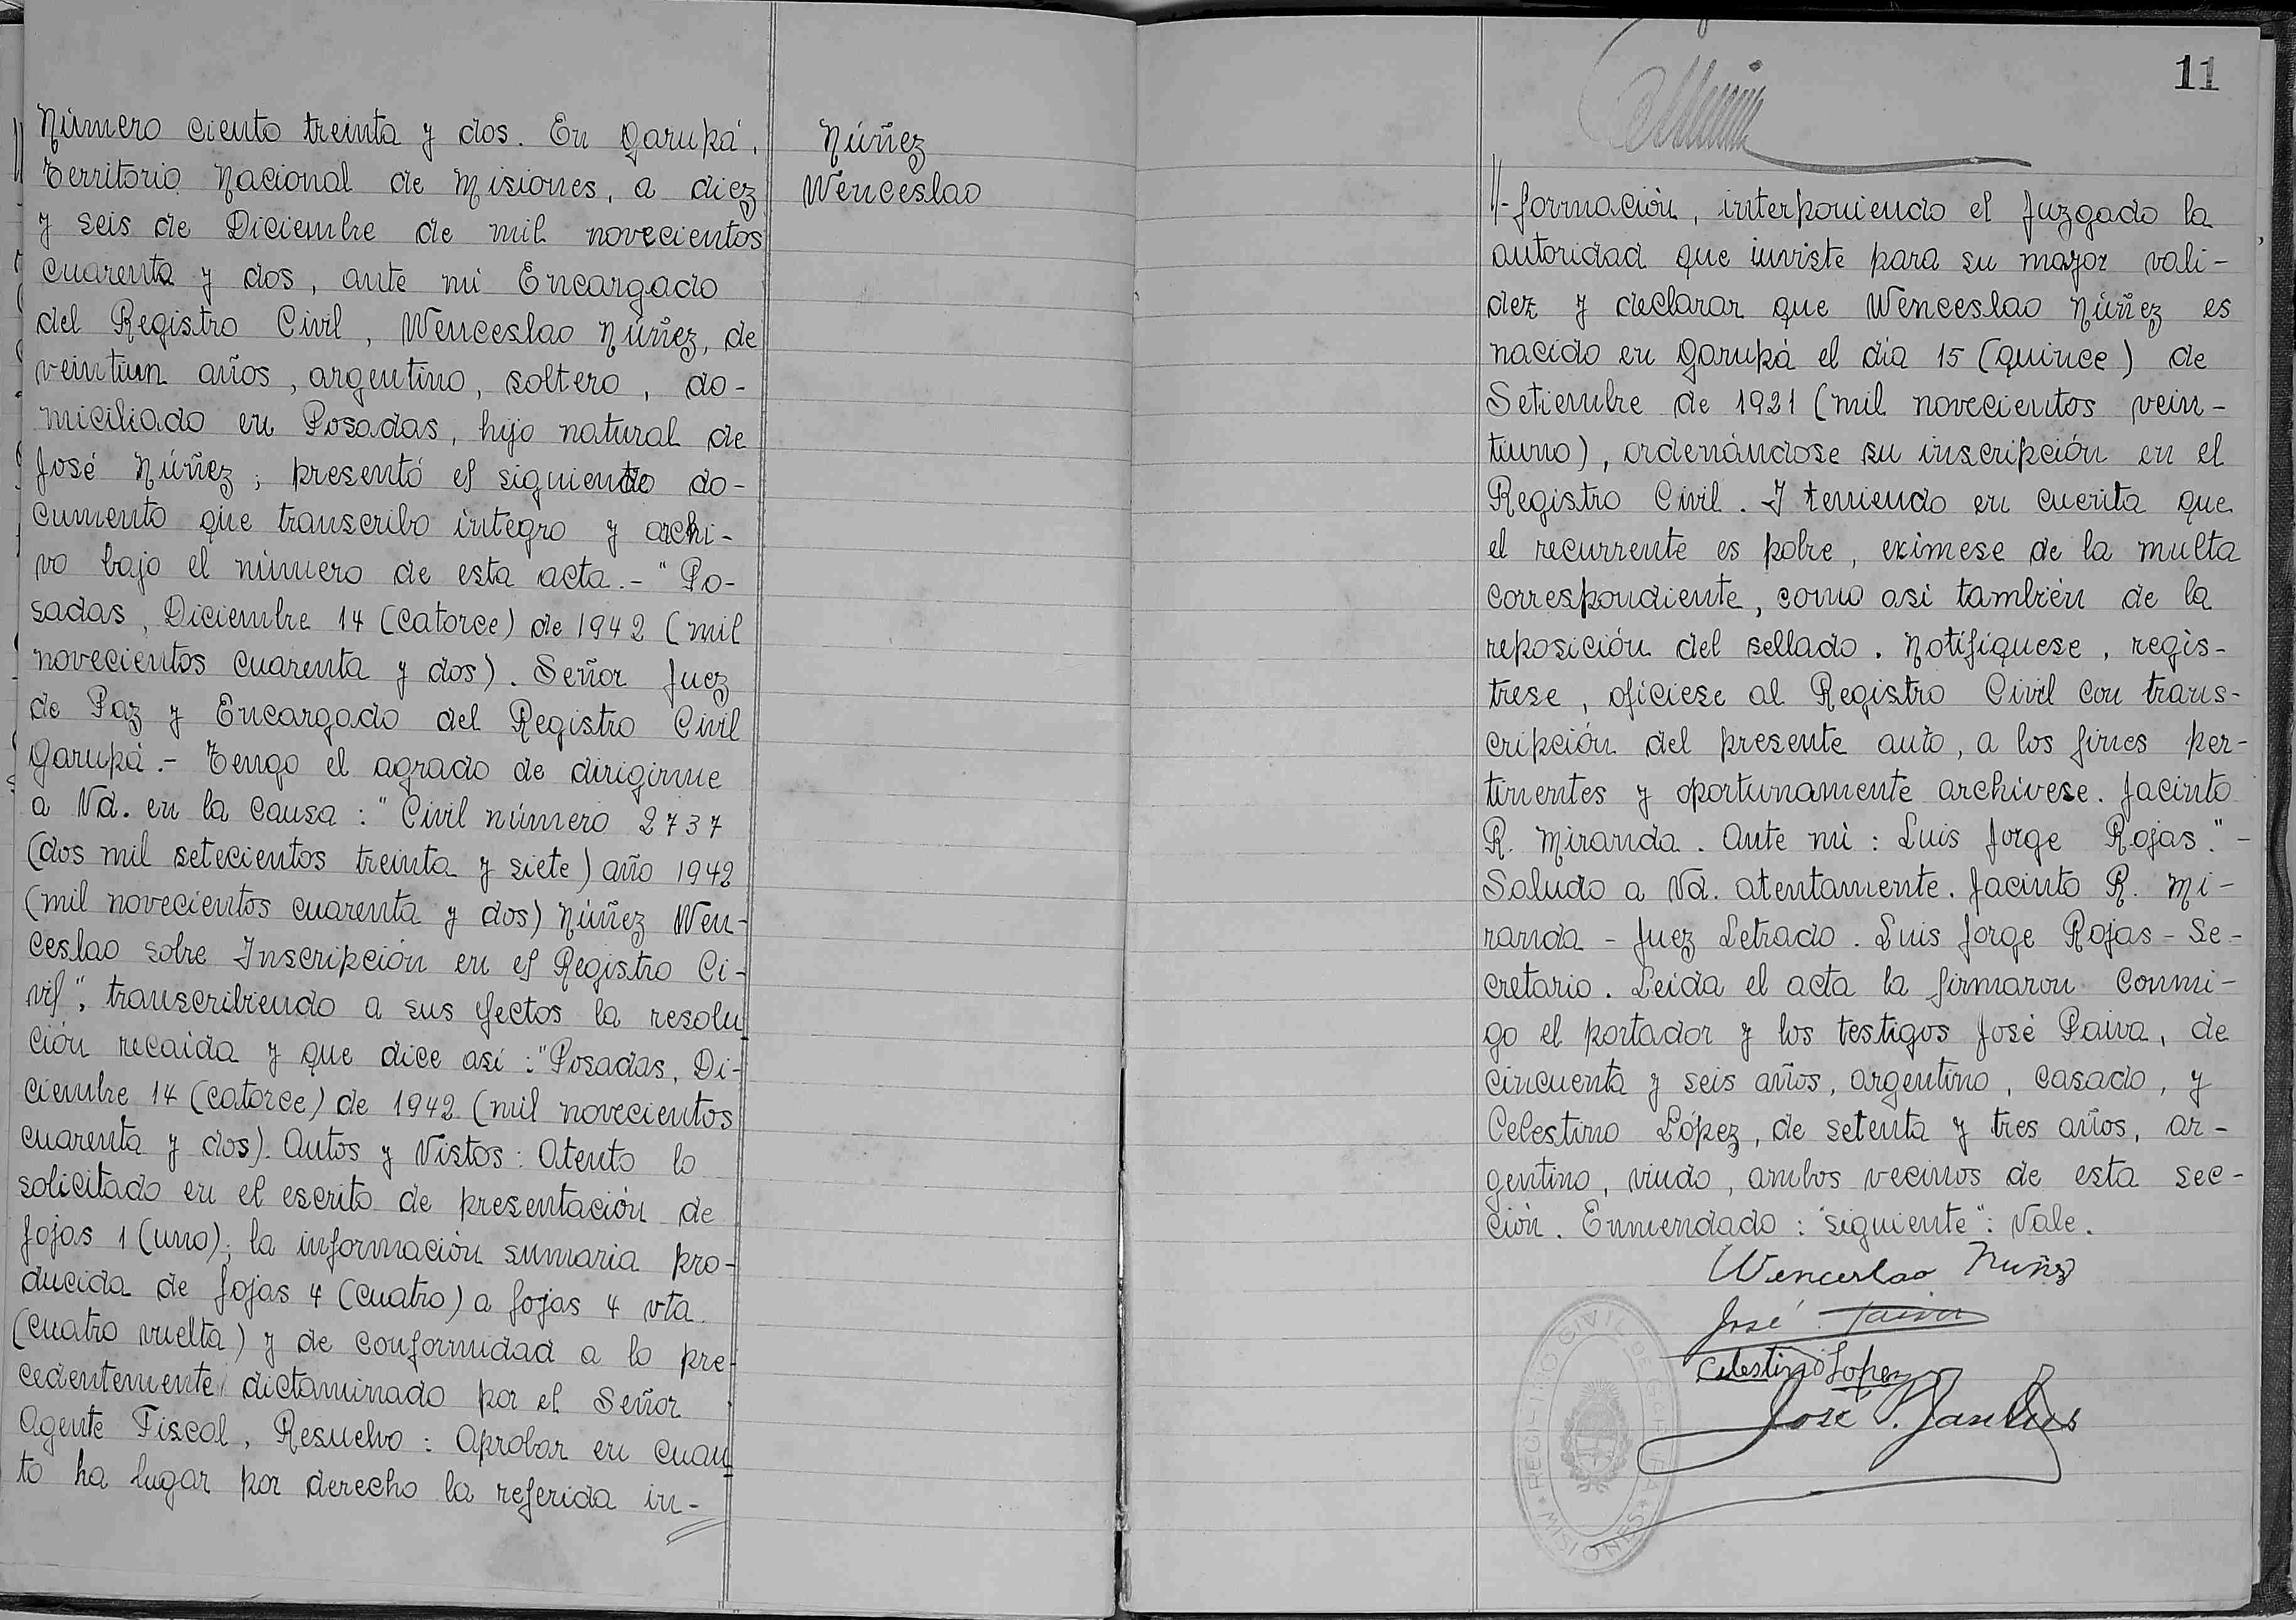 Número ciento treinta y dos. En Garupá,
Territorio Nacional de Misiones, a diez
y seis de Diciembre de mil novecientos
cuarenta y dos, ante mi Encargado
del Registro Civil, Wenceslao Núñez, de
veintiun años, argentino, soltero, do-
miciliado en Posadas, hijo natural de
José Núñez; presentó el siguiente do-
cumento que transcribo integro y archi-
vo bajo el número de esta acta.- "Po-
sadas, Diciembre 14 (catorce) de 1942 (mil
novecientos cuarenta y dos). Señor Juez
de Paz y Encargado del Registro Civil
Garupá.- Tengo el agrado de dirigirme
a Vd. en la causa: "Civil número 2737
(dos mil setecientos treinta y siete) año 1942
(mil novecientos cuarenta y dos) Núñez Wen-
ceslao sobre Inscripción en el Registro Ci-
vil", transcribiendo a sus efectos la resolu
ción recaida y que dice asi: "Posadas, Di-
ciembre 14 (catorce) de 1942 (mil novecientos
cuarenta y dos). Autos y Vistos: Atento lo
solicitado en el escrito de presentación de
fojas 1 (uno); la información sumaria pro-
ducida de fojas 4 (cuatro) a fojas 4 vta.
(cuatro vuelta) y de conformidad a lo pre-
cedentemente dictaminado por el Señor
Agente Fiscal, Resuelvo: Aprobar en cuan
to ha lugar por derecho la referida in-
Núñez
Wenceslao
11
//-formación, interponiendo el Juzgado la
autoridad que inviste para su mayor vali-
dez y declarar que Wenceslao Núñez es
nacido en Garupá el día 15 (quince) de
Setiembre de 1921 (mil novecientos vein-
tiuno), ordenándose su inscripción en el
Registro Civil. Y teniendo en cuenta que
el recurrente es pobre, exímese de la multa
correspondiente, como asi también de la
reposición del sellado. Notifíquese, regis-
trese, ofíciese al Registro Civil con trans-
cripción del presente auto, a los fines per-
tinentes y oportunamente archívese. Jacinto
R. Miranda. Ante mi: Luis Jorge Rojas."-
Saludo a Vd. atentamente. Jacinto R. Mi-
randa - Juez Letrado. Luis Jorge Rojas - Se-
cretario. Leida el acta la firmaron conmi-
go el portador y los testigos José Paiva, de
cincuenta y seis años, argentino, casado, y
Celestino López, de setenta y tres años, ar-
gentino, viudo, ambos vecinos de esta sec-
ción. Enmendado: "siguiente": Vale.
Wencerlao Nuñez
José Paiva
Celestino Lopez
José
REGISTRO CIVIL DE GARUPA
MISIONES